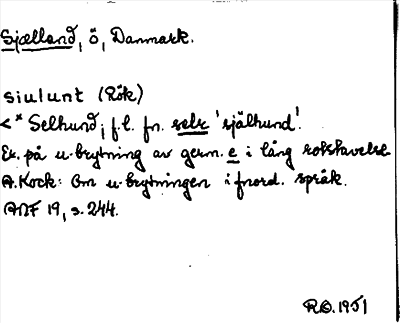 Sjælland, ö, Danmark.
siulunt (Rök)
<* Selhund, f.l. fn. selr 'själhund'.
Ex. på u-brytning av germ. e i lång rotstavelse.
A. Kock: Om u-brytningen i fnord. språk.
ANF 19, s. 244.
R.O. 1951